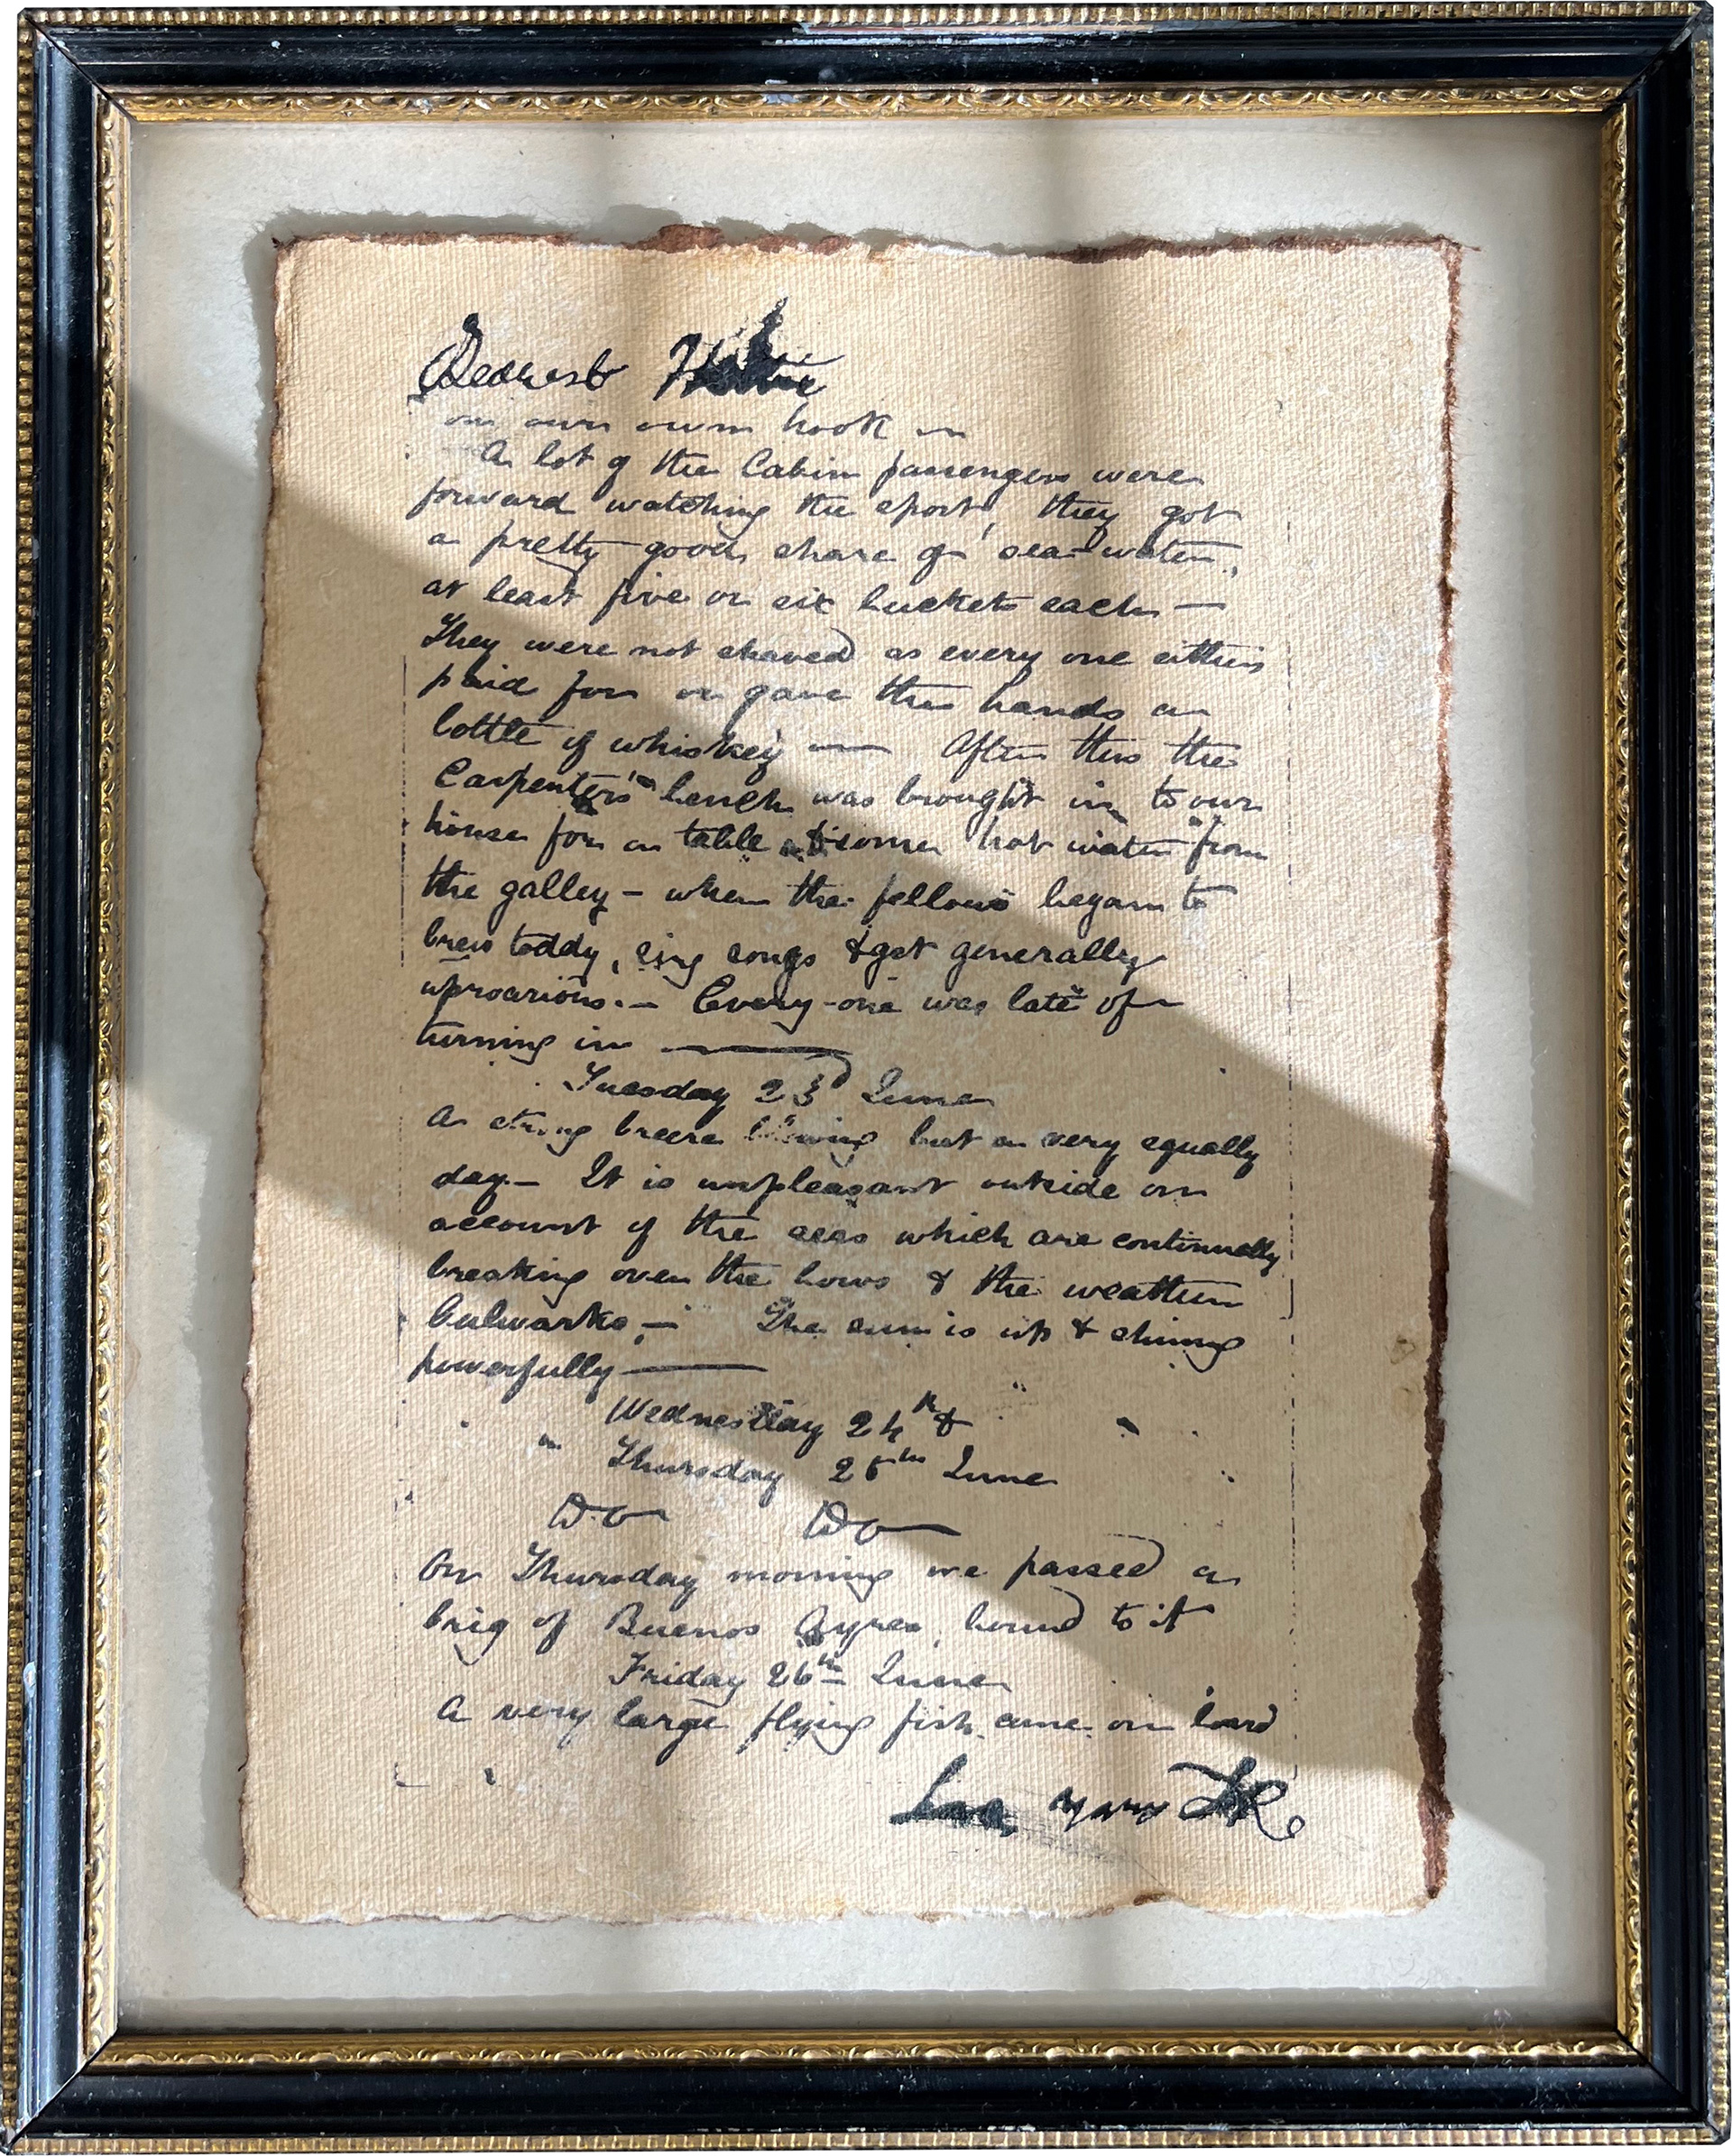 Dearest
our own hook
A lot of the Cabin passengers were
forward watching the sport, they got
a pretty good share of sea-water,
at least five or six buckets each —
They were not shaved as every one either
paid for or gave the hands a
bottle of whiskey — After this the
Carpenter's bench was brought in to our
house for a table & some hot water from
the galley – when the fellows began to
brew toddy, sing songs & get generally
uproarious. – Every-one was late of
turning in —
Tuesday 23d June
A strong breeze blowing but a very squally
day – It is unpleasant outside on
account of the seas which are continually
breaking over the bows & the weather
bulwarks, – The sun is up & shining
powerfully —
Wednesday 24th &
Thursday 25th June
Do Do
On Thursday morning we passed a
brig of Buenos Ayres, bound to it
Friday 26th June
A very large flying fish came on board